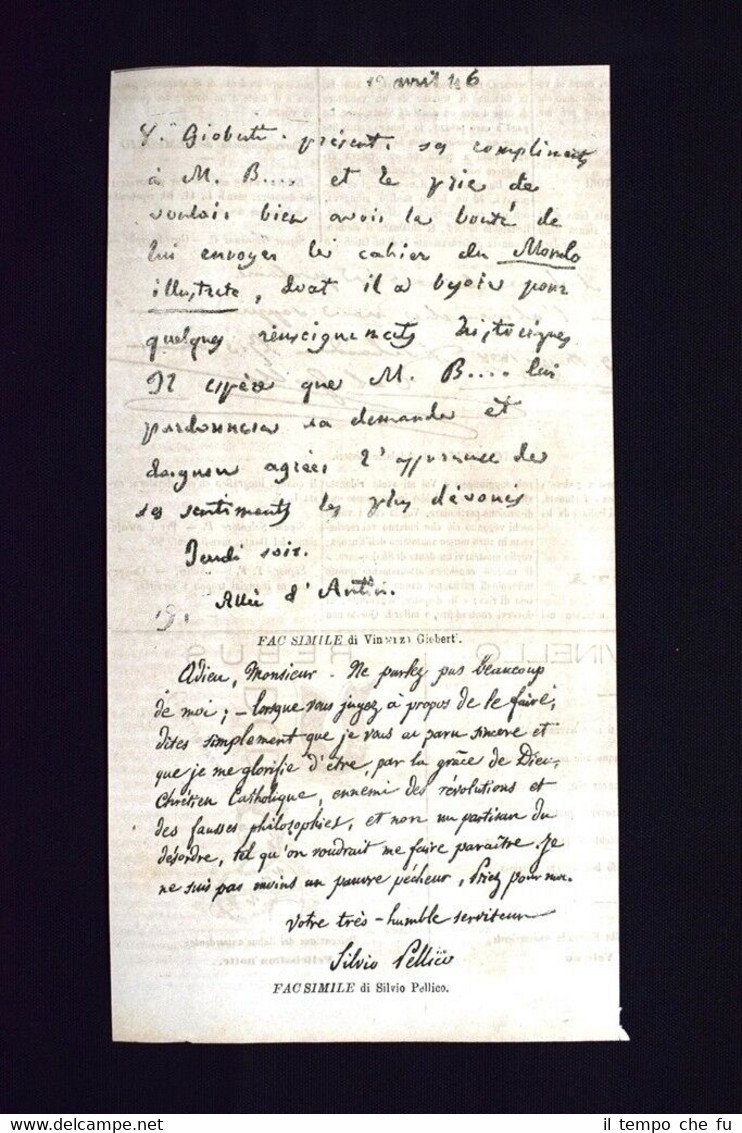 avril 46
V. Gioberti présente ses compliments
à M. B.... et le prie de
vouloir bien avoir la bonté de
lui envoyer le cahier du Mondo
illustrato, dont il a besoin pour
quelques renseignements historiques
Il espère que M. B.... lui
pardonnera sa demande et
daignera agréer l'assurance de
ses sentiments les plus dévoués
Jeudi soir.
Allée d'Antin.
FAC SIMILE di Vin Gioberti.
Adieu, Monsieur. Ne parlez pas beaucoup
de moi; – lorsque vous jugez à propos de le faire,
dites simplement que je vous ai paru sincere et
que je me glorifie d'être, par la grâce de Dieu,
Chrétien Catholique, ennemi des révolutions et
des fausses philosophies, et non un partisan du
désordre, tel qu'on voudrait me faire paraître. Je
ne suis pas moins un pauvre pécheur, Priez pour moi.
Votre très-humble serviteur
Silvio Pellico
FAC SIMILE di Silvio Pellico.
il tempo che fu